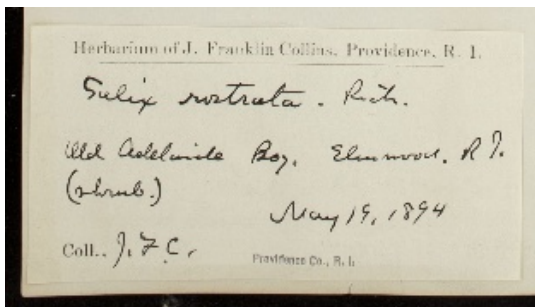 Herbarium of J. Franklin Collins, Providence, R. I.
Salix rostrata. Rich.
Old Adelaide Bog. Elmwood. R I.
(shrub.)
May 19, 1894
Coll., J. F. C.
Providence Co., R. I.